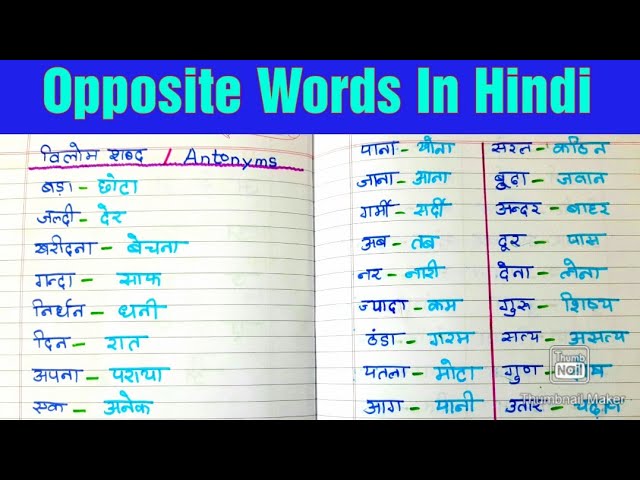 Opposite Words In Hindi
विलोम शब्द / Antonyms
बड़ा - छोटा
जल्दी - देर
खरीदना - बेचना
गन्दा - साफ
निर्धन - धनी
दिन - रात
अपना - पराया
एक - अनेक
पाना - खोना
जाना - आना
गर्मी - सर्दी
अब - तब
नर - नारी
ज्यादा - कम
ठंडा - गरम
पतला - मोटा
आग - पानी
सरल - कठिन
बूढ़ा - जवान
अन्दर - बाहर
दूर - पास
देना - लेना
गुरू - शिष्य
सत्य - असत्य
गुण -
उतार - चढ़ाव
Thumb
Nail
Thumbnail Maker